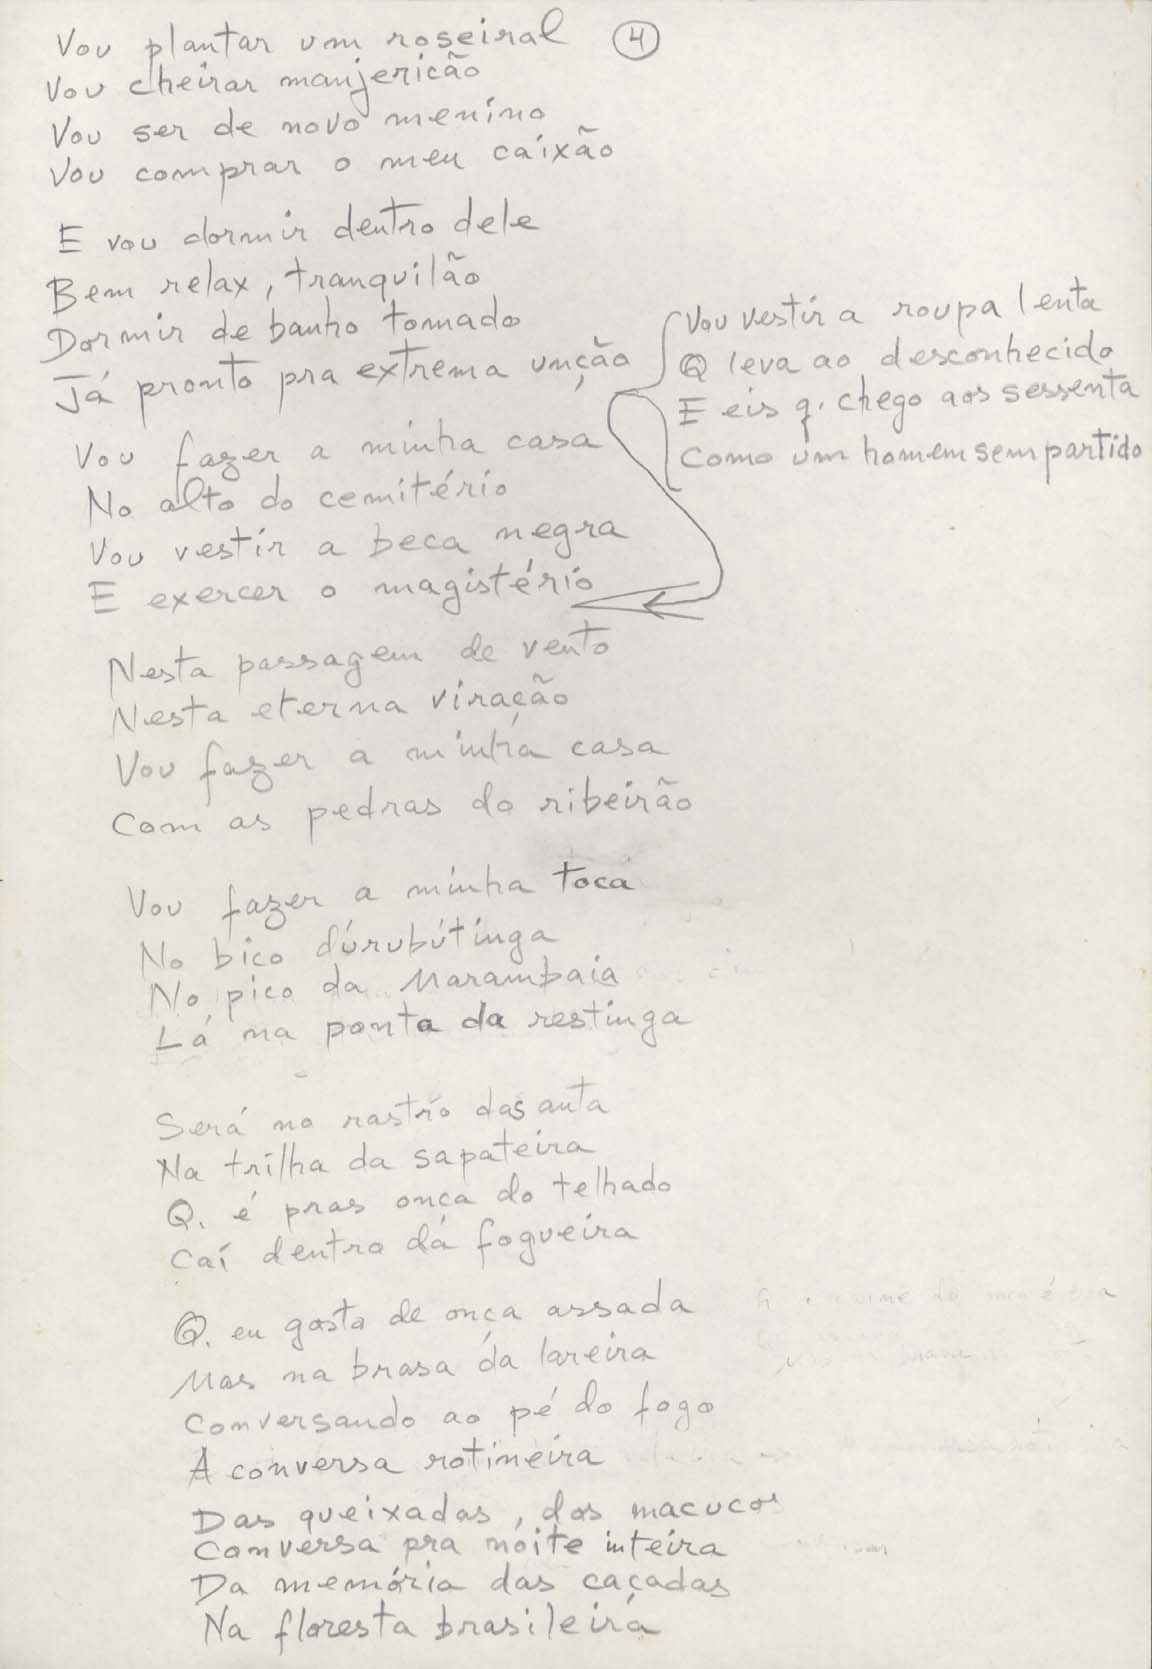 Vou plantar um roseiral
4
Vou cheirar manjericão
Vou ser de novo menino
Vou comprar o meu caixão
E vou dormir dentro dele
Bem relax, tranquilão
Dormir de banho tomado
Já pronto pra extrema unção
Vou vestir a roupa lenta
Q leva ao desconhecido
E eis q. chego aos sessenta
Como um homem sem partido
Vou fazer a minha casa
No alto do cemitério
Vou vestir a beca negra
E exercer o magistério
Nesta passagem de vento
Nesta eterna viração
Vou fazer a minha casa
Com as pedras do ribeirão
Vou fazer a minha toca
No bico dúrubútinga
No pico da Marambaia
Lá na ponta da restinga
Será no rastro das anta
Na trilha da sapateira
Q. é pras onça do telhado
Caí dentro da fogueira
Q. eu gosto de onça assada
Mas na brasa da lareira
Conversando ao pé do fogo
A conversa rotineira
Das queixadas, dos macucos
Conversa pra noite inteira
Da memória das caçadas
Na floresta brasileira